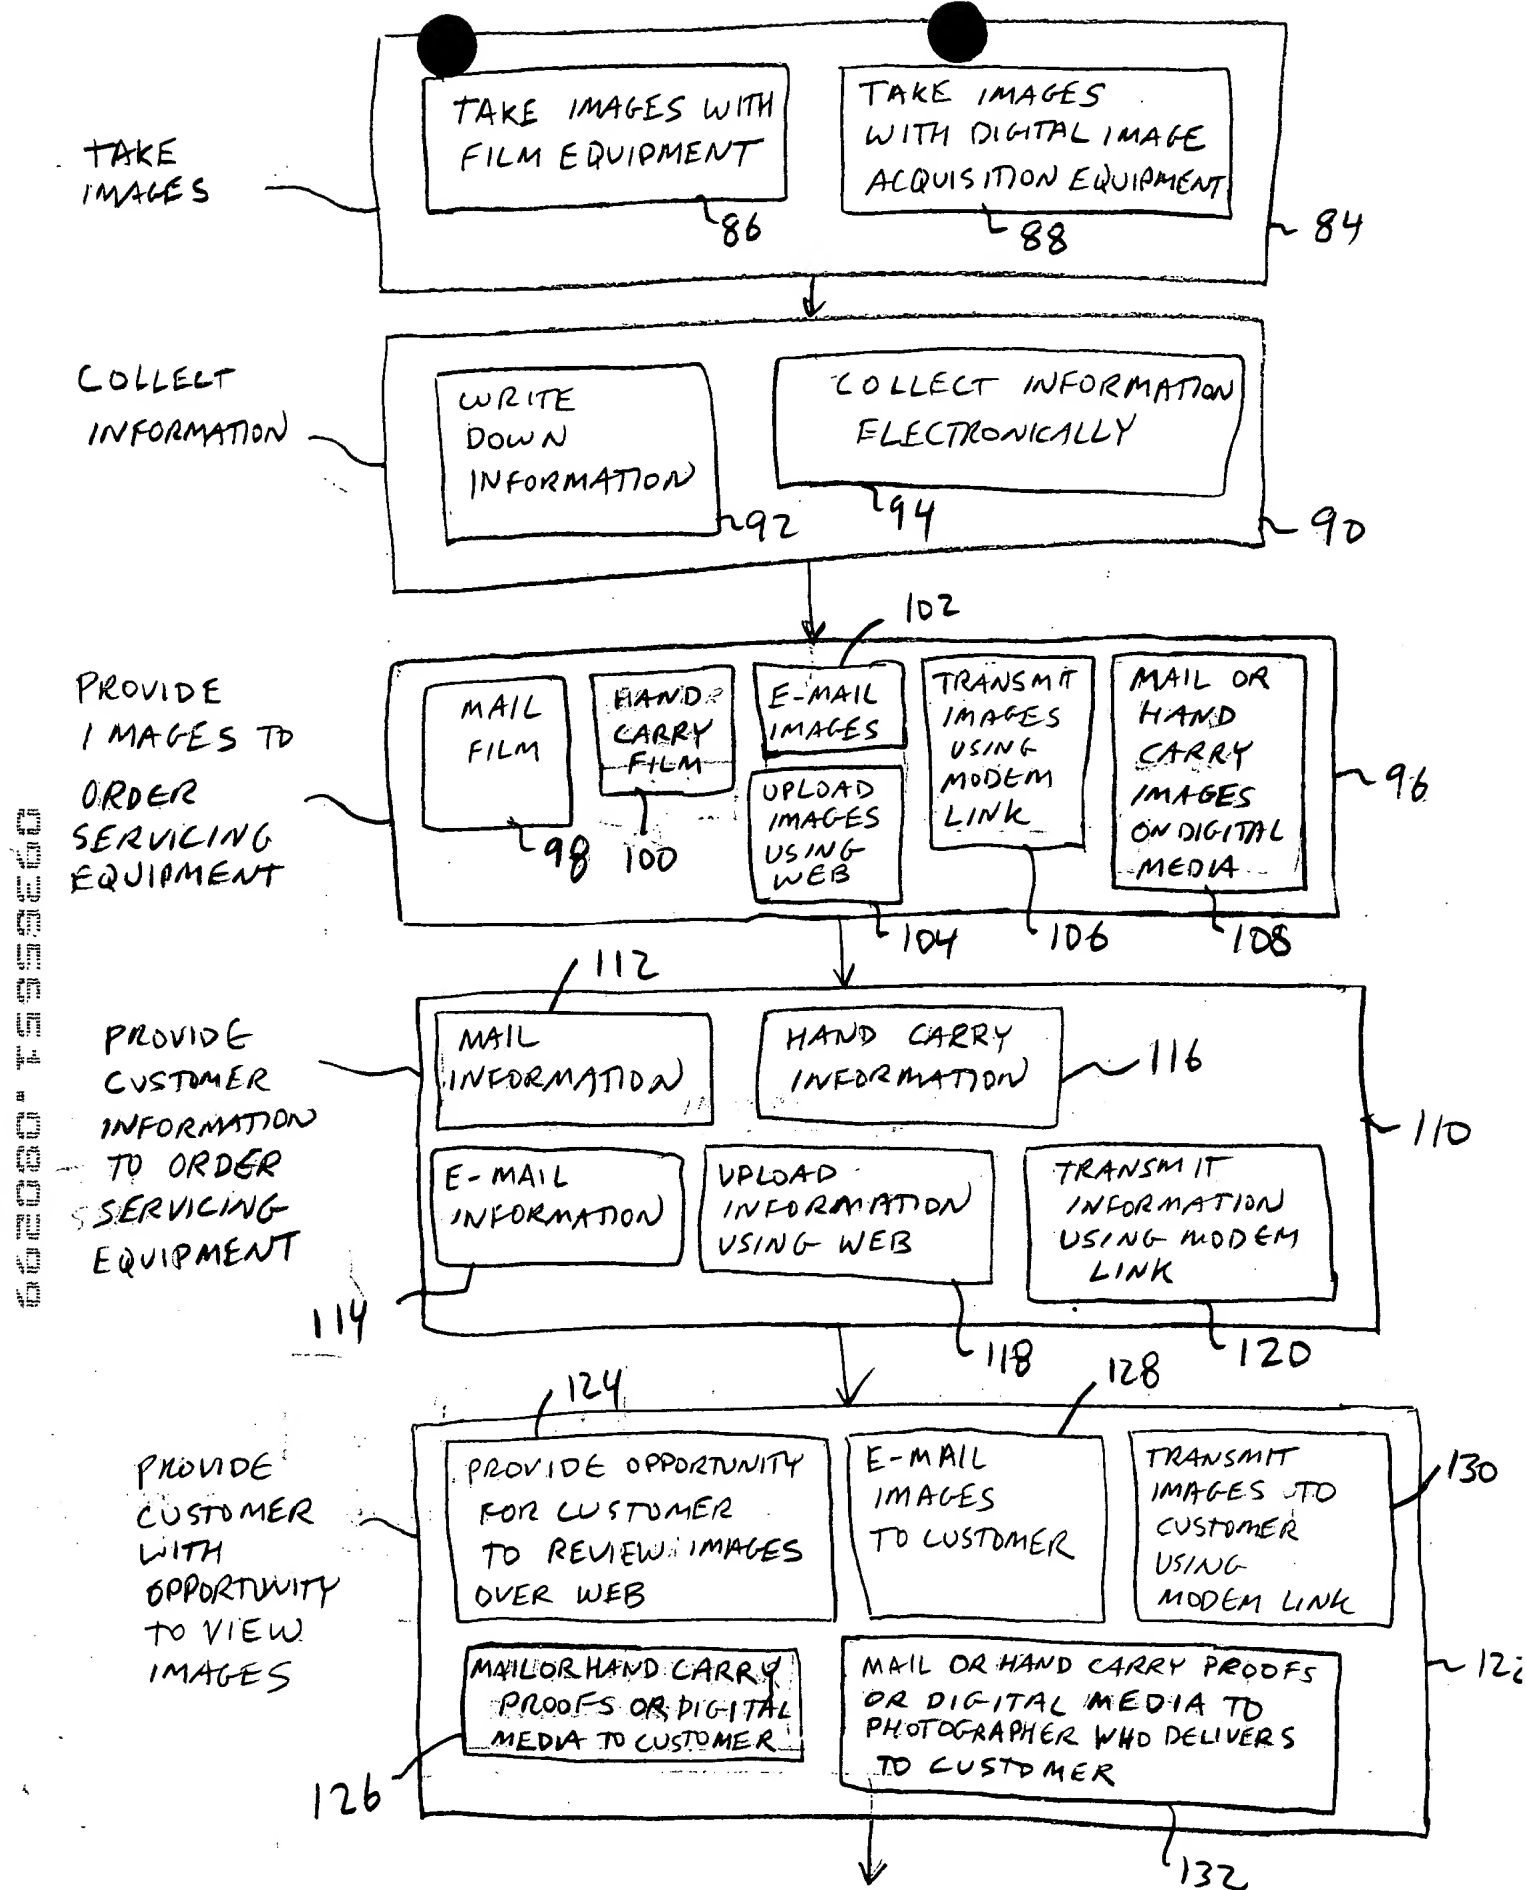 TAKE
IMAGES
TAKE IMAGES WITH
FILM EQUIPMENT
86
TAKE IMAGES
WITH DIGITAL IMAGE
ACQUISITION EQUIPMENT
88
84
COLLECT
INFORMATION
WRITE
DOWN
INFORMATION
92
COLLECT INFORMATION
ELECTRONICALLY
94
90
PROVIDE
IMAGES TO
ORDER
SERVICING
EQUIPMENT
MAIL
FILM
98
HAND
CARRY
FILM
100
102
E-MAIL
IMAGES
UPLOAD
IMAGES
USING
WEB
104
TRANSMIT
IMAGES
USING
MODEM
LINK
106
MAIL OR
HAND
CARRY
IMAGES
ON DIGITAL
MEDIA
108
96
PROVIDE
CUSTOMER
INFORMATION
TO ORDER
SERVICING
EQUIPMENT
112
MAIL
INFORMATION
HAND CARRY
INFORMATION
116
E-MAIL
INFORMATION
114
UPLOAD
INFORMATION
USING WEB
118
TRANSMIT
INFORMATION
USING MODEM
LINK
120
110
PROVIDE
CUSTOMER
WITH
OPPORTUNITY
TO VIEW
IMAGES
124
PROVIDE OPPORTUNITY
FOR CUSTOMER
TO REVIEW IMAGES
OVER WEB
128
E-MAIL
IMAGES
TO CUSTOMER
TRANSMIT
IMAGES TO
CUSTOMER
USING
MODEM LINK
130
MAIL OR HAND CARRY
PROOFS OR DIGITAL
MEDIA TO CUSTOMER
126
MAIL OR HAND CARRY PROOFS
OR DIGITAL MEDIA TO
PHOTOGRAPHER WHO DELIVERS
TO CUSTOMER
132